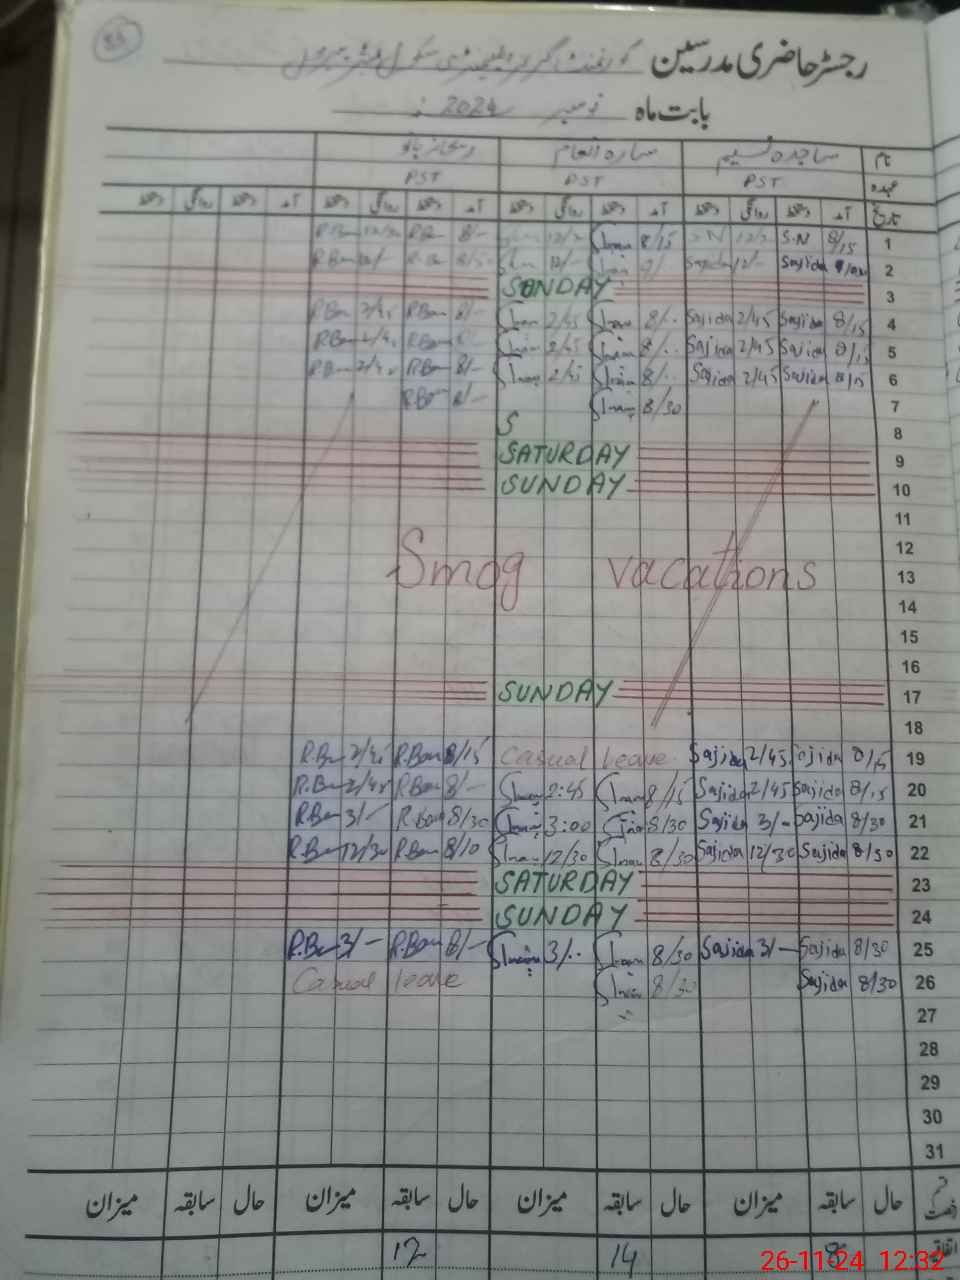 رجسٹر حاضری مدرسین گورنمنٹ گرلز
بابت ماہ نومبر 2024
نام ساجدہ نسیم سارہ انعام ریحانہ بانو
عہدہ PST PST PST
تاریخ آمد دستخط روانگی دستخط آمد دستخط روانگی دستخط آمد دستخط روانگی دستخط آمد دستخط روانگی دستخط
1 8/15 S.N 12/ S.N 8/15 12/ 8/- R.Ban R.Ban
2 Sajida 12/- Sajida 12/- 8/ R.Ban R.Ban
3 SUNDAY
4 8/15 Sajida 2/45 Sajida 8/.. 2/45 8/- R.Ban 2/45 R.Ban
5 8/15 Sajida 2/45 Sajida 8/.. 2/45 R.Ban 2/45 R.Ban
6 8/15 Sajida 2/45 Sajida 8/.. 2/45 8/- R.Ban 2/45 R.Ban
7 8/30 8/- R.Ban
8 S
9 SATURDAY
10 SUNDAY
11
12
13 Smog vacations
14
15
16
17 SUNDAY
18
19 8/15 Sajida 2/45 Sajida Casual leave 8/15 R.Ban 2/45 R.Ban
20 8/15 Sajida 2/45 Sajida 8/15 2:45 8/- R.Ban 2/45 R.Ban
21 8/30 Sajida 3/- Sajida 8/30 3:00 8/30 R.Ban 3/- R.Ban
22 8/30 Sajida 12/30 Sajida 8/30 12/30 8/10 R.Ban 12/30 R.Ban
23 SATURDAY
24 SUNDAY
25 8/30 Sajida 3/- Sajida 8/30 3/.. 8/- R.Ban 3/- R.Ban
26 8/30 Sajida 8/30 Casual leave
27
28
29
30
31
قسم رخصت حال سابقہ میزان حال سابقہ میزان حال سابقہ میزان حال سابقہ میزان
اتفاقیہ 8 14 12
26-11-24 12:32